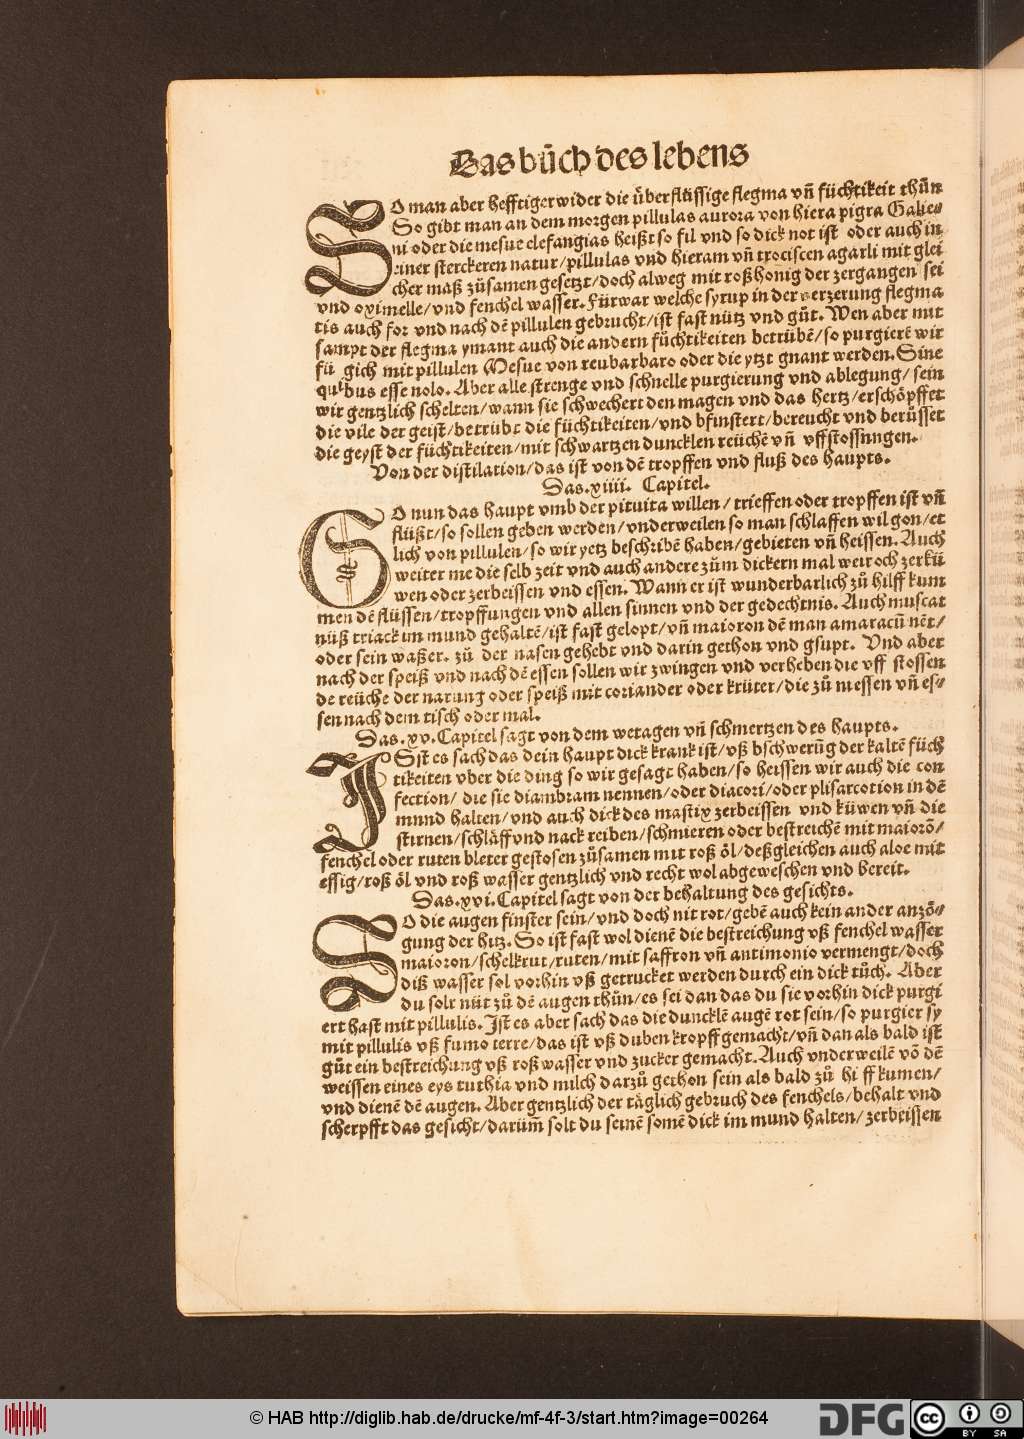 Das bůch des lebens
SO man aber hefftiger wider die ǔberflüssige flegma vñ füchtikeit thůn
So gibt man an dem morgen pillulas aurora von hiera pigra Galie⸗
ni oder die mesue elefangias heißt so fil vnd so dick not ist oder auch in
einer sterckeren natur/pillulas vnd hieram vñ trociscen agarli mit glei
cher maß zůsamen gesetzt/doch alweg mit roßhonig der zergangen sei
vnd oximelle/vnd fenchel wasser. Fürwar welche syrup in der verzerung flegma
tis auch for vnd nach dē pillulen gebrucht/ist fast nütz vnd gůt. Wen aber mit
sampt der flegma ymant auch die andern füchtikeiten betrübē/so purgierē wir
fü gich mit pillulen Mesue von reubarbaro oder die ytzt gnant werden. Sine
quibus esse nolo. Aber alle strenge vnd schnelle purgierung vnd ablegung/sein
wir gentzlich schelten/wann sie schwechert den magen vnd das hertz/erschöpffet
die vile der geist/betrübt die füchtikeiten/vnd bfinstert/bereucht vnd berüsset
die geyst der füchtikeiten/mit schwartzen duncklen reüchē vñ vffstossnngen.
Von der distilation/das ist von dē tropffen vnd fluß des haupts.
Das.xiiii. Capitel.
SO nun das haupt vmb der pituita willen/trieffen oder tropffen ist vñ
flüßt/so sollen geben werden/vnderweilen so man schlaffen wil gon/et
lich von pillulen/so wir yetz beschribē haben/gebieten vñ heissen. Auch
weiter me die selb zeit vnd auch andere zům dickern mal weiroch zerkü
wen oder zerbeissen vnd essen. Wann er ist wunderbarlich zů hilff kum
men dē flüssen/tropffungen vnd allen sinnen vnd der gedechtnis. Auch muscat
nüß triack im mund gehaltē/ist fast gelopt/vñ maioron dē man amaracū nēt/
oder sein waßer. zů der nasen gehebt vnd darin gethon vnd gsupt. Vnd aber
nach der speiß vnd nach dē essen sollen wir zwingen vnd verheben die vff stossen
de reüche der narung oder speiß mit coriander oder krüter/die zů niessen vñ es⸗
sen nach dem tisch oder mal.
Das.xv.Capitel sagt von dem wetagen vñ schmertzen des haupts.
ISist es sach das dein haupt dick kranck ist/vß bschwerūg der kaltē füch
tikeiten vber die ding so wir gesagt haben/so heissen wir auch die con
fection/ die sie diambram nennen/oder diacori/oder plisarcotion in dē
mund halten/vnd auch dick des mastix zerbeissen vnd küwen vñ die
stirnen/schläff vnd nack reiben/schmieren oder bestreichē mit maiorō/
fenchel oder ruten bleter gestosen zůsamen mit roß öl/deßgleichen auch aloe mit
essig/roß öl vnd roß wasser gentzlich vnd recht wol abgeweschen vnd bereit.
Das.xvi.Capitel sagt von der behaltung des gesichts.
SO die augen finster sein/vnd doch nit rot/gebē auch kein ander anzö⸗
gung der hitz. So ist fast wol dienē die bestreichung vß fenchel wasser
maioron/schelkrut/ruten/mit saffron vñ antimonio vermengt/doch
diß wasser sol vorhin vß getrucket werden durch ein dick tůch. Aber
du solt nüt zů dē augen thůn/es sei dan das du sie vorhin dick purgi
ert hast mit pillulis. Ist es aber sach das die duncklē augē rot sein/so purgier sy
mit pillulis vß fumo terre/das ist vß duben kropff gemacht/vñ dan als bald ist
gůt ein bestreichung vß roß wasser vnd zucker gemacht. Auch vnderweilē vō dē
weissen eines eys tuthia vnd milch darzů gethon sein als bald zů hi ff kumen/
vnd dienē dē augen. Aber gentzlich der täglich gebruch des fenchels/behalt vnd
scherpfft das gesicht/darüm̄ solt du seinē somē dick im mund halten/zerbeissen
© HAB http://diglib.hab.de/drucke/mf-4f-3/start.htm?image=00264
DFG
cc BY SA